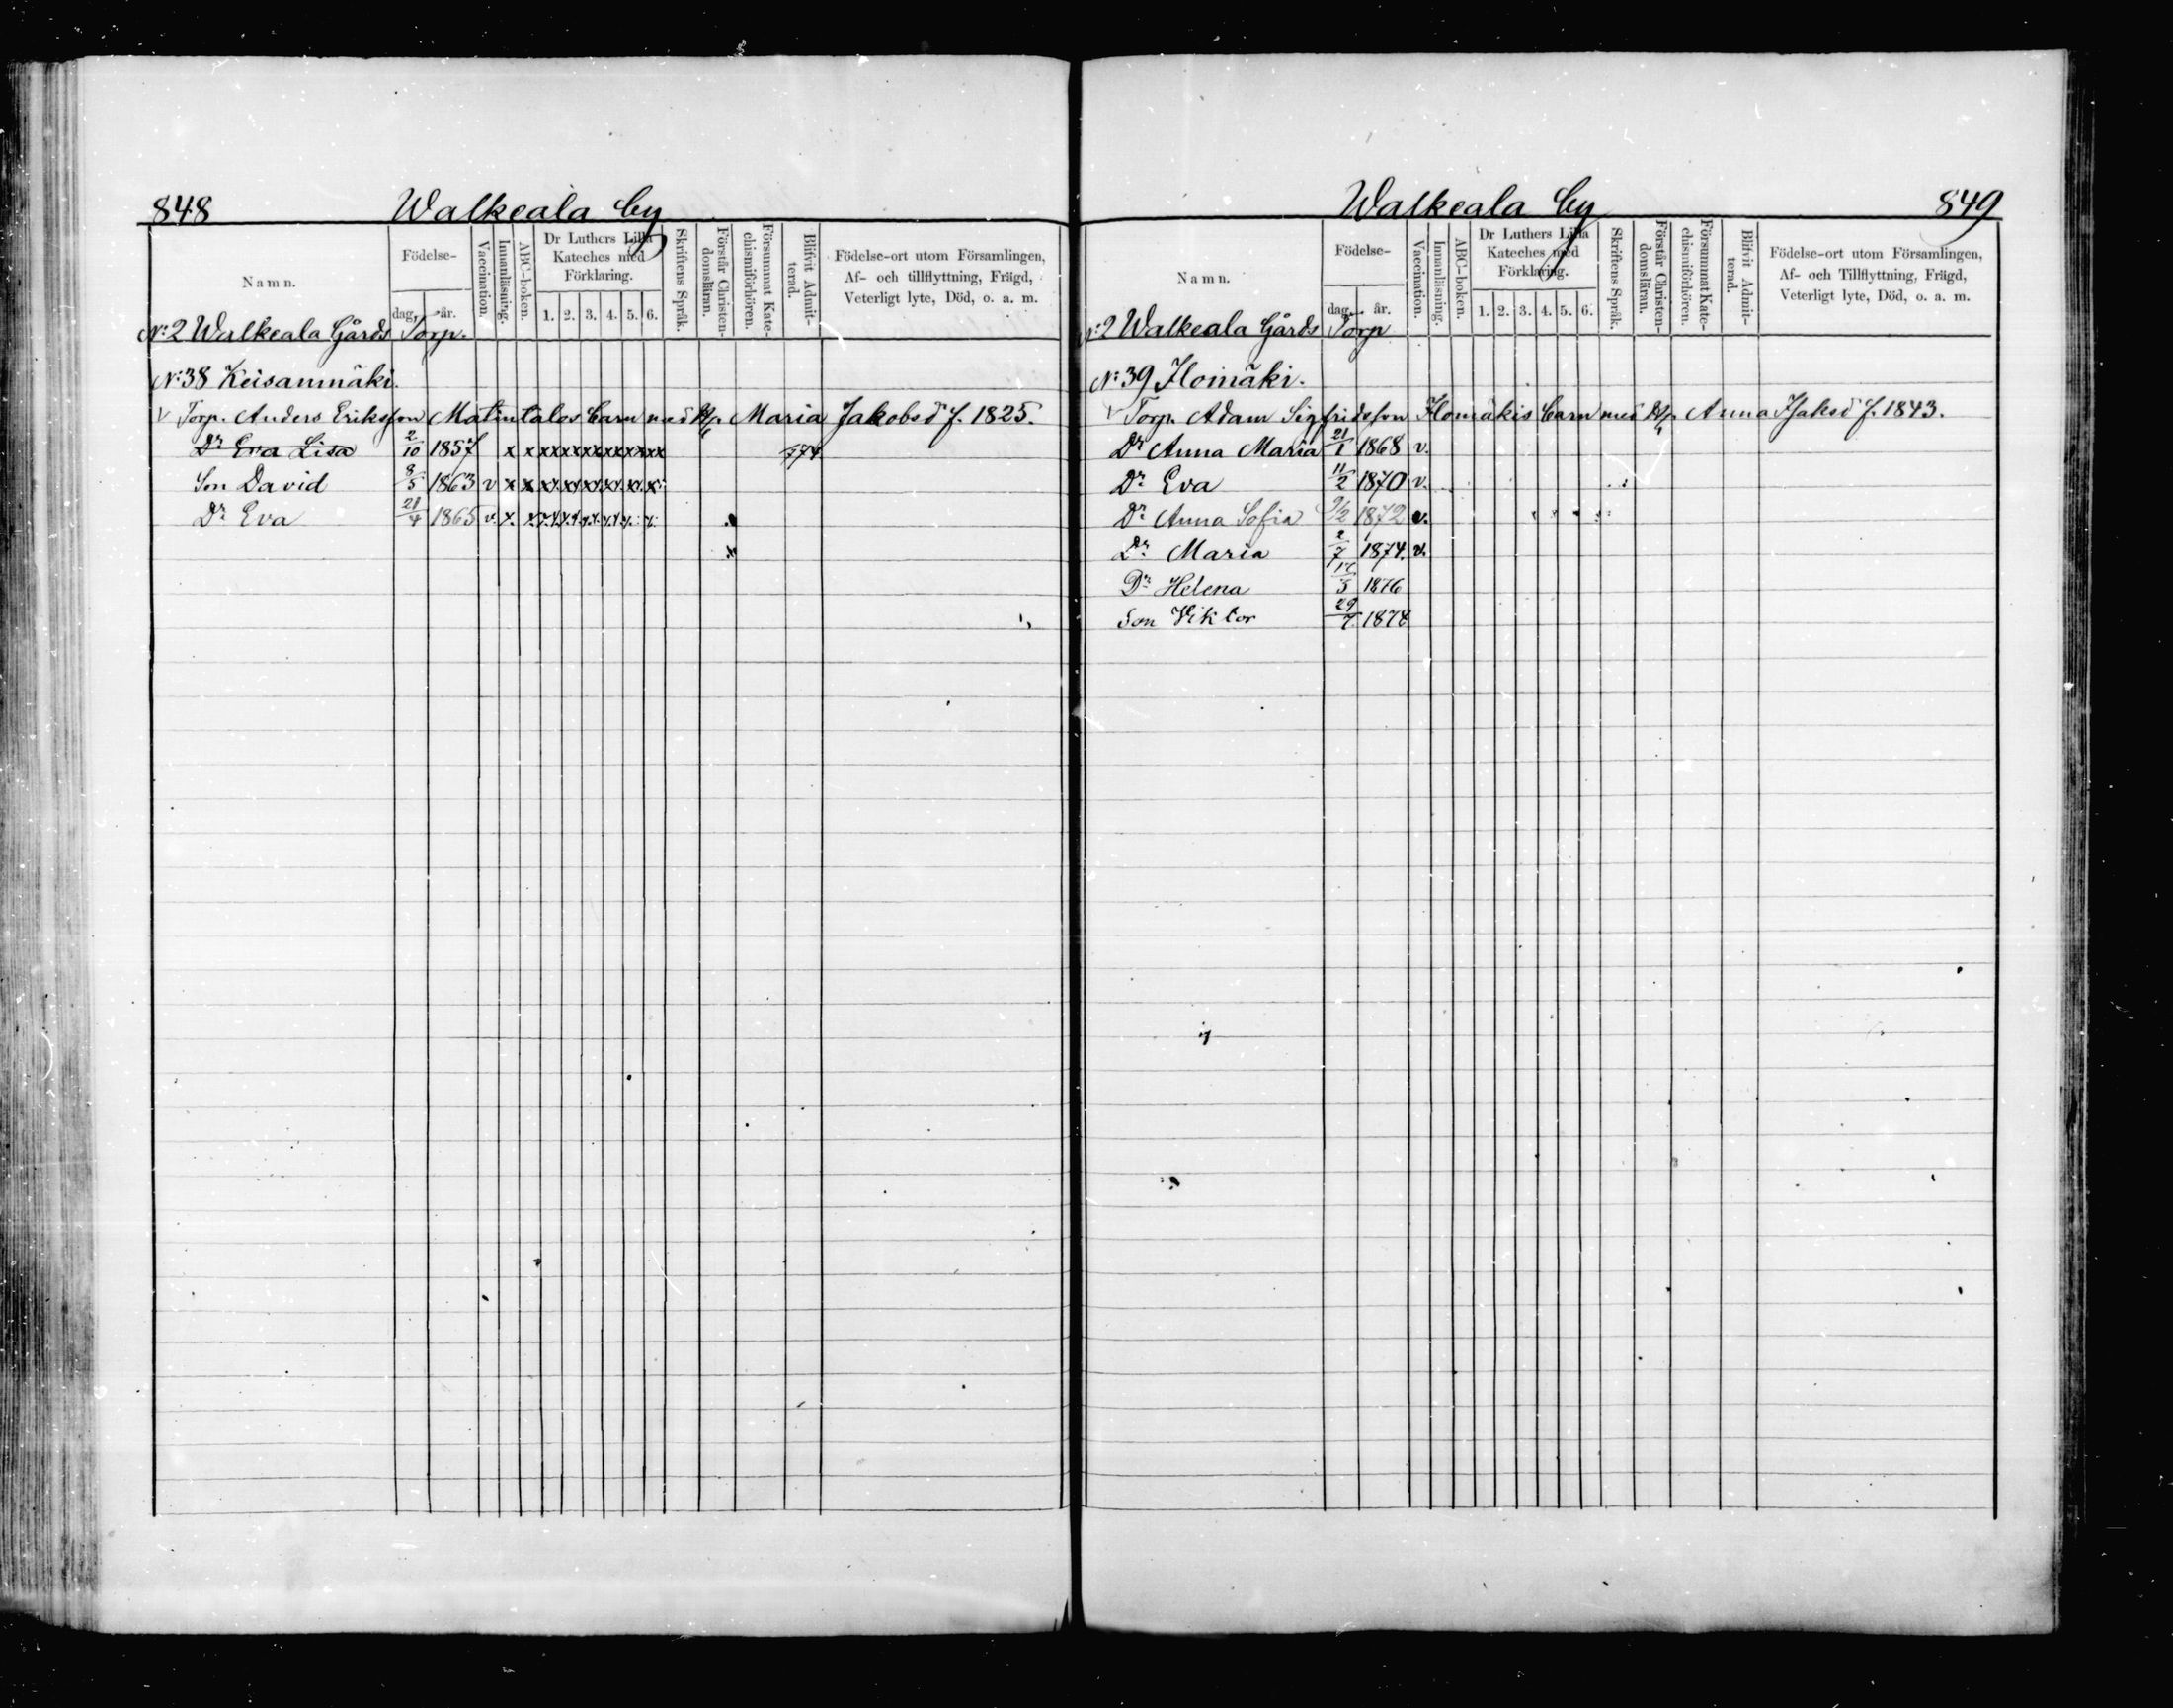 848 Walkeala by
Namn. Födelse- dag. år. Vaccination. Innanläsning. ABC-boken. Dr Luthers Lilla Kateches med Förklaring. 1. 2. 3. 4. 5. 6. Skriftens Språk. Förstår Christendomsläran. Försummat Katechismiförhören. Blifvit Admitterad. Födelse-ort utom Församlingen, Af- och tillflyttning, Frägd, Veterligt lyte, Död, o. a. m.
N:2 Walkeala Gårds Torp.
N:38 Keisanmäki.
v Torp. Anders Eriksson Matintalos barn med H/. Maria Jakobsd f. 1825.
Dr Eva Lisa 2/10 1857 x x xxxxxxxxxxxx 174
Son David 8/5 1863 v x x x x x x x x
Dr Eva 21/4 1865 v. x. x
Walkeala by 849
Namn. Födelse- dag. år. Vaccination. Innanläsning. ABC-boken. Dr Luthers Lilla Kateches med Förklaring. 1. 2. 3. 4. 5. 6. Skriftens Språk. Förstår Christendomsläran. Försummat Katechismiförhören. Blifvit Admitterad. Födelse-ort utom Församlingen, Af- och Tillflyttning, Frägd, Veterligt lyte, Död, o. a. m.
N:2 Walkeala Gårds Torp
N:39 Ilomäki.
v Torp. Adam Sigfridsson Ilomäkis barn med H/. Anna Isaksd f. 1843.
Dr Anna Maria 21/1 1868 v.
Dr Eva 11/2 1870 v.
Dr Anna Sofia 9/2 1872 v.
Dr Maria 2/7 1874. v.
Dr Helena 1876
Son Viktor 29/7 1878